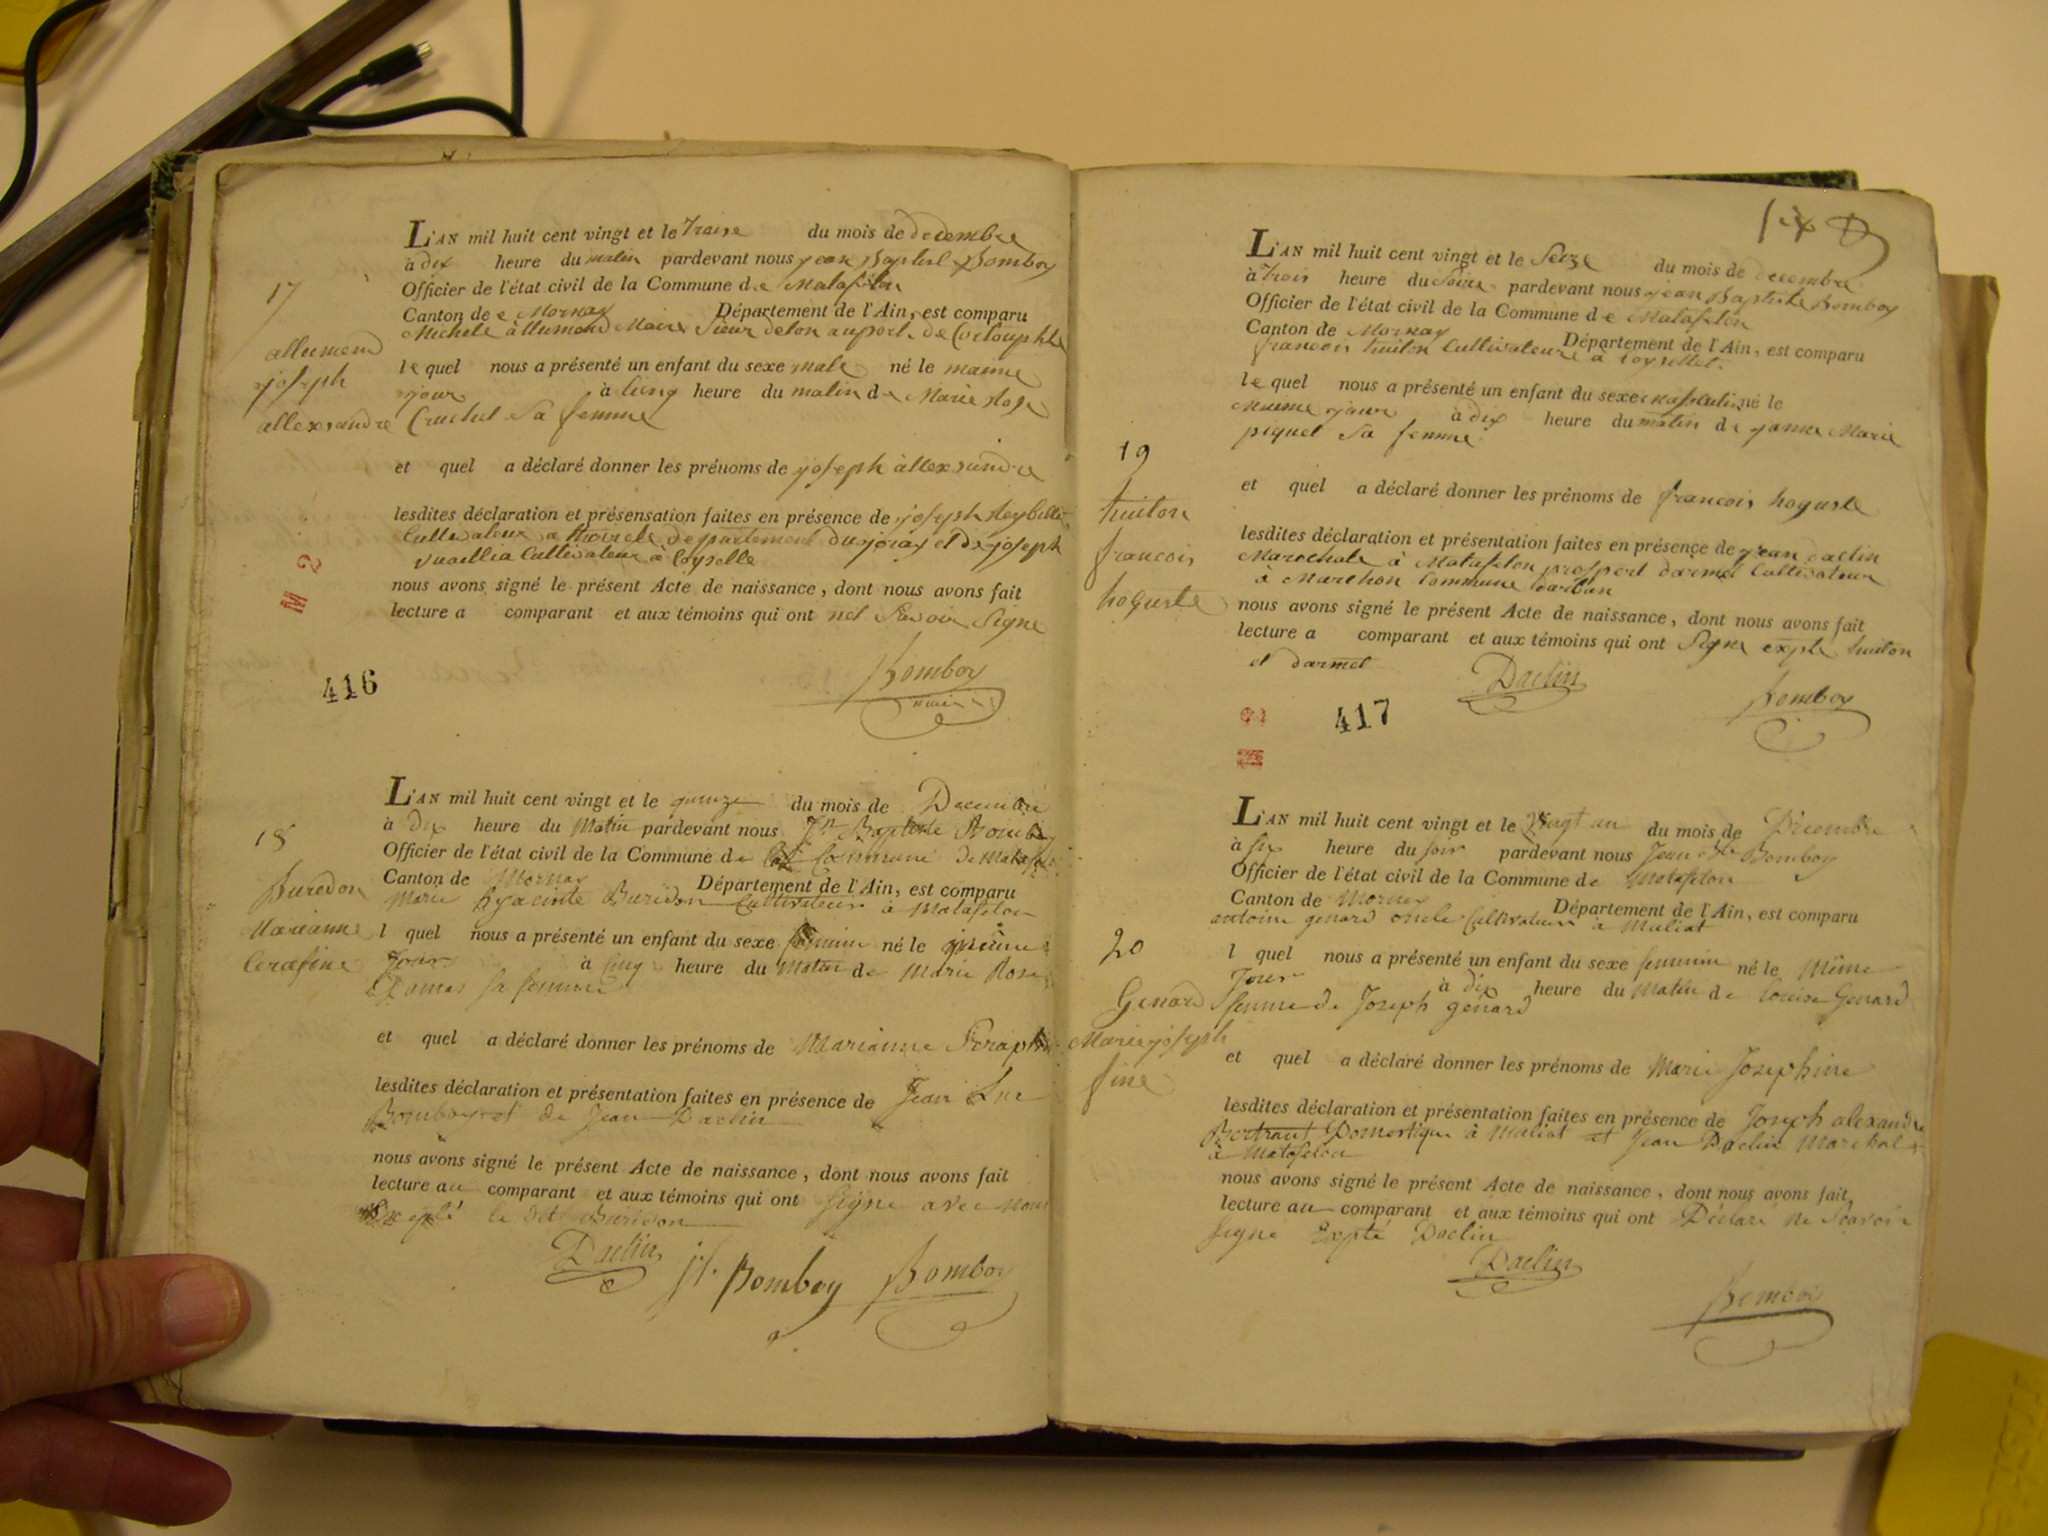 17
allumend
joseph
allexandre
L'AN mil huit cent vingt et le Traise du mois de decembre
à dix heure du matin pardevant nous jean Baptist Bomboy
Officier de l'état civil de la Commune de Matafelon
Canton de Mornay Département de l'Ain, est comparu
Michele allumand Maire
le quel nous a présenté un enfant du sexe male né le maime
jour à cinq heure du matin de Marie Rose
Cruchet sa femme
et quel a déclaré donner les prénoms de joseph allexandre
lesdites déclaration et présensation faites en présence de joseph
Cultivateur a departement du et de joseph
Vuaillia Cultivateur à Coyselle
nous avons signé le présent Acte de naissance, dont nous avons fait
lecture a comparant et aux témoins qui ont Savoir Signe
Bomboy
M 2
416
18
Buredon
Marianne
Cerafine
L'AN mil huit cent vingt et le quinze du mois de Decembre
à Dix heure du Matin pardevant nous Jn Baptiste Bomboy
Officier de l'état civil de la Commune de la Commune de Matafelon
Canton de Mornay Département de l'Ain, est comparu
Marie hyacinte Buridon Cultivateur à Matafelon
l quel nous a présenté un enfant du sexe feminin né le même
Jour à cinq heure du Matin de Marie Rose
sa femme
et quel a déclaré donner les prénoms de Marianne
lesdites déclaration et présentation faites en présence de Jean Luc
Bomboy et de Jean Daclin
nous avons signé le présent Acte de naissance, dont nous avons fait
lecture au comparant et aux témoins qui ont signe avec nous
Excepté le dit Buridon
Daclin Bomboy Bomboy
six
19
tuiton
francois
hoguste
L'AN mil huit cent vingt et le Seize du mois de decembre
à Trois heure du Soire pardevant nous jean Baptiste Bomboy
Officier de l'état civil de la Commune de Matafelon
Canton de Mornay Département de l'Ain, est comparu
francois tuiton Cultivateur à Coysellet
le quel nous a présenté un enfant du sexe masculin né le
Maime jour à dix heure du matin de janne Marie
piquet sa femme
et quel a déclaré donner les prénoms de francois hoguste
lesdites déclaration et présentation faites en présence de jean daclin
Marechale à Matafelon prospert darmet Cultivateur
à Marchon Commune darban
nous avons signé le présent Acte de naissance, dont nous avons fait
lecture a comparant et aux témoins qui ont Signe expte tuiton
et darmet
Daclin
Bomboy
417
20
Genard
Marie joseph
fine
L'AN mil huit cent vingt et le Vingt un du mois de Décembre
à six heure du soir pardevant nous Jean Bte Bomboy
Officier de l'état civil de la Commune de Matafelon
Canton de Mornay Département de l'Ain, est comparu
antoine genard oncle Cultivateur à Maliat
l quel nous a présenté un enfant du sexe feminin né le Même
Jour à dix heure du matin de louise Genard
femme de Joseph génard
et quel a déclaré donner les prénoms de Marie Josephine
lesdites déclaration et présentation faites en présence de Joseph alexandre
Bertrant Domestique à Maliat et Jean Daclin Marechal
à Matafelon
nous avons signé le présent Acte de naissance, dont nous avons fait
lecture au comparant et aux témoins qui ont Déclaré ne Scavoir
signé Expté Daclin
Daclin
Bomboy